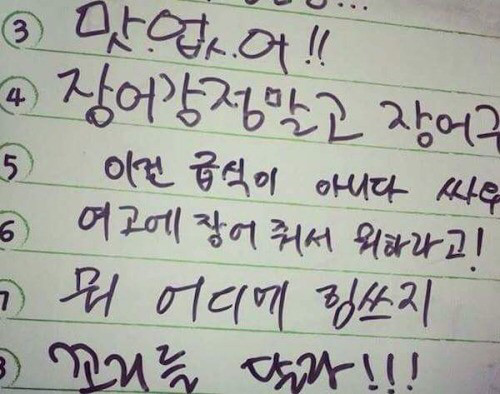 ③ 맛.업.서.어!!
④ 장어강정말고 장어구
5 이건 급식이 아니다 싸우
6 여고에 장어 줘서 뭐하라고!
7 뭐 어디에 힘쓰지
8 꼬리를 달라!!!